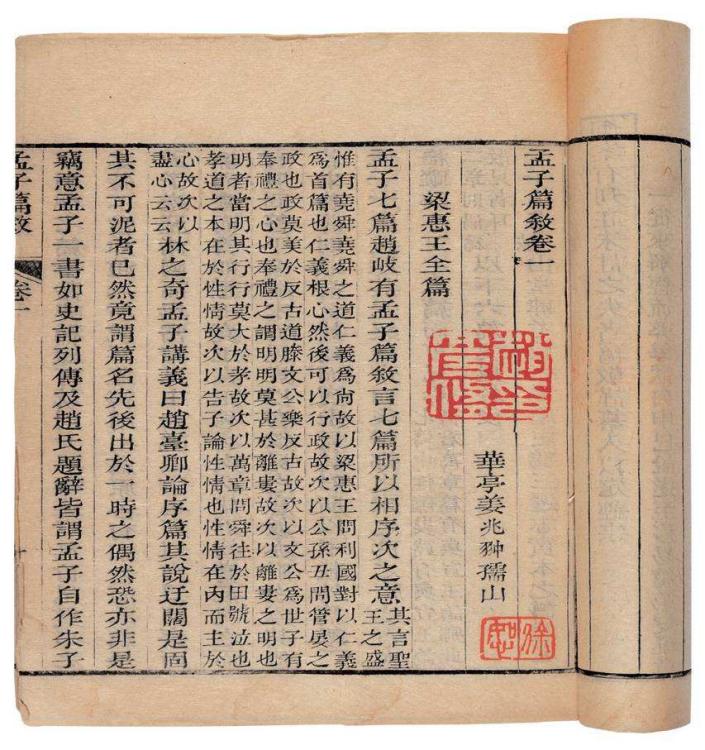 孟子篇敘卷一
華亭姜兆翀孺山
徐恕
梁惠王全篇
孟子七篇趙岐有孟子篇敘言七篇所以相序次之意
其言聖
王之盛
惟有堯舜堯舜之道仁義爲尙故以梁惠王問利國對以仁義
爲首篇也仁義根心然後可以行政故次以公孫丑問管晏之
政也政莫美於反古道滕文公樂反古故次以文公爲世子有
奉禮之心也奉禮之謂明明莫甚於離婁故次以離婁之明也
明者當明其行行莫大於孝故次以萬章問舜往於田號泣也
孝道之本在於性情故次以告子論性情也性情在內而主於
心故次以
盡心云云
林之奇孟子講義曰趙臺卿論序篇其說迂闊是固
其不可泥者已然竟謂篇名先後出於一時之偶然恐亦非是
竊意孟子一書如史記列傳及趙氏題辭皆謂孟子自作朱子
孟子篇敘 卷一